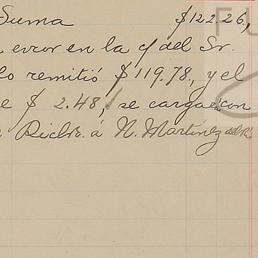 Suma $122.26,
error en la c/ del Sr.
lo remitió $119.78, y el
e $ 2.48, se cargó con
á N. Martínez del R